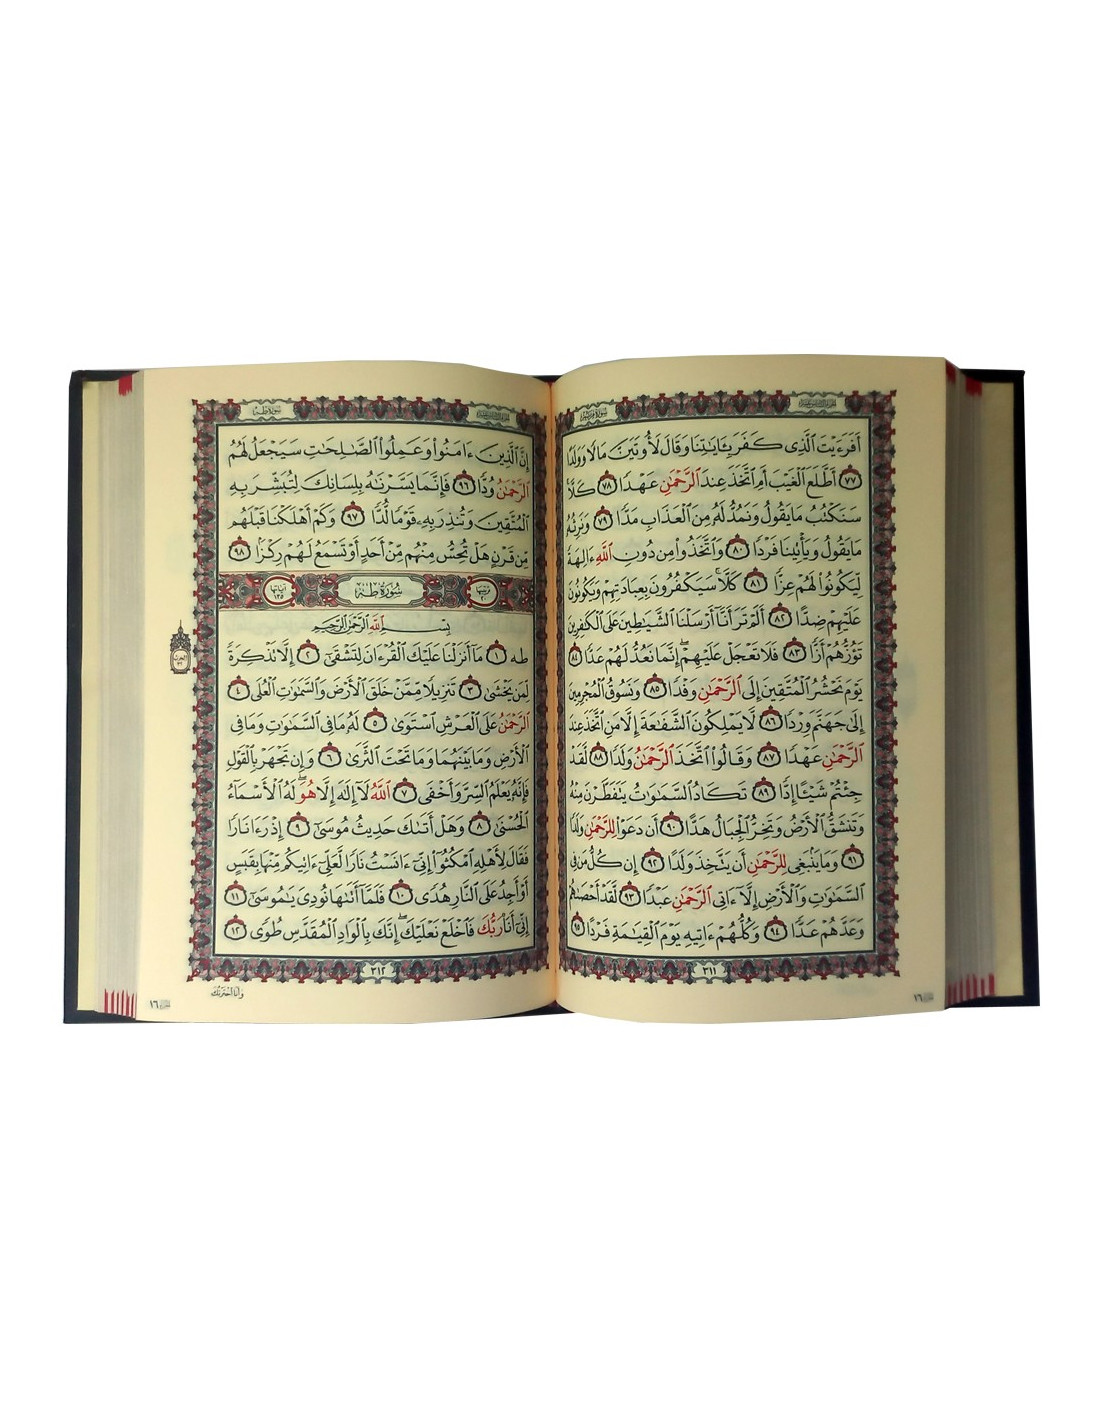 سورة مريم
أَفَرَءَيْتَ ٱلَّذِى كَفَرَ بِـَٔايَٰتِنَا وَقَالَ لَأُوتَيَنَّ مَالًا وَوَلَدًا
٧٧ أَطَّلَعَ ٱلْغَيْبَ أَمِ ٱتَّخَذَ عِندَ ٱلرَّحْمَٰنِ عَهْدًا ٧٨ كَلَّا
سَنَكْتُبُ مَا يَقُولُ وَنَمُدُّ لَهُۥ مِنَ ٱلْعَذَابِ مَدًّا ٧٩ وَنَرِثُهُۥ
مَا يَقُولُ وَيَأْتِينَا فَرْدًا ٨٠ وَٱتَّخَذُوا۟ مِن دُونِ ٱللَّهِ ءَالِهَةً
لِّيَكُونُوا۟ لَهُمْ عِزًّا ٨١ كَلَّا ۚ سَيَكْفُرُونَ بِعِبَادَتِهِمْ وَيَكُونُونَ
عَلَيْهِمْ ضِدًّا ٨٢ أَلَمْ تَرَ أَنَّآ أَرْسَلْنَا ٱلشَّيَٰطِينَ عَلَى ٱلْكَٰفِرِينَ
تَؤُزُّهُمْ أَزًّا ٨٣ فَلَا تَعْجَلْ عَلَيْهِمْ ۖ إِنَّمَا نَعُدُّ لَهُمْ عَدًّا ٨٤
يَوْمَ نَحْشُرُ ٱلْمُتَّقِينَ إِلَى ٱلرَّحْمَٰنِ وَفْدًا ٨٥ وَنَسُوقُ ٱلْمُجْرِمِينَ
إِلَىٰ جَهَنَّمَ وِرْدًا ٨٦ لَّا يَمْلِكُونَ ٱلشَّفَٰعَةَ إِلَّا مَنِ ٱتَّخَذَ عِندَ
ٱلرَّحْمَٰنِ عَهْدًا ٨٧ وَقَالُوا۟ ٱتَّخَذَ ٱلرَّحْمَٰنُ وَلَدًا ٨٨ لَّقَدْ
جِئْتُمْ شَيْـًٔا إِدًّا ٨٩ تَكَادُ ٱلسَّمَٰوَٰتُ يَتَفَطَّرْنَ مِنْهُ
وَتَنشَقُّ ٱلْأَرْضُ وَتَخِرُّ ٱلْجِبَالُ هَدًّا ٩٠ أَن دَعَوْا۟ لِلرَّحْمَٰنِ وَلَدًا
٩١ وَمَا يَنۢبَغِى لِلرَّحْمَٰنِ أَن يَتَّخِذَ وَلَدًا ٩٢ إِن كُلُّ مَن فِى
ٱلسَّمَٰوَٰتِ وَٱلْأَرْضِ إِلَّآ ءَاتِى ٱلرَّحْمَٰنِ عَبْدًا ٩٣ لَّقَدْ أَحْصَىٰهُمْ
وَعَدَّهُمْ عَدًّا ٩٤ وَكُلُّهُمْ ءَاتِيهِ يَوْمَ ٱلْقِيَٰمَةِ فَرْدًا ٩٥
٣١١
١٦
سورة طه
إِنَّ ٱلَّذِينَ ءَامَنُوا۟ وَعَمِلُوا۟ ٱلصَّٰلِحَٰتِ سَيَجْعَلُ لَهُمُ
ٱلرَّحْمَٰنُ وُدًّا ٩٦ فَإِنَّمَا يَسَّرْنَٰهُ بِلِسَانِكَ لِتُبَشِّرَ بِهِ
ٱلْمُتَّقِينَ وَتُنذِرَ بِهِۦ قَوْمًا لُّدًّا ٩٧ وَكَمْ أَهْلَكْنَا قَبْلَهُم
مِّن قَرْنٍ هَلْ تُحِسُّ مِنْهُم مِّنْ أَحَدٍ أَوْ تَسْمَعُ لَهُمْ رِكْزًۢا ٩٨
ترتيبها ٢٠ سُورَةُ طه آياتها ١٣٥
بِسْمِ ٱللَّهِ ٱلرَّحْمَٰنِ ٱلرَّحِيمِ
طه ١ مَآ أَنزَلْنَا عَلَيْكَ ٱلْقُرْءَانَ لِتَشْقَىٰٓ ٢ إِلَّا تَذْكِرَةً
لِّمَن يَخْشَىٰ ٣ تَنزِيلًا مِّمَّنْ خَلَقَ ٱلْأَرْضَ وَٱلسَّمَٰوَٰتِ ٱلْعُلَى ٤
ٱلرَّحْمَٰنُ عَلَى ٱلْعَرْشِ ٱسْتَوَىٰ ٥ لَهُۥ مَا فِى ٱلسَّمَٰوَٰتِ وَمَا فِى
ٱلْأَرْضِ وَمَا بَيْنَهُمَا وَمَا تَحْتَ ٱلثَّرَىٰ ٦ وَإِن تَجْهَرْ بِٱلْقَوْلِ
فَإِنَّهُۥ يَعْلَمُ ٱلسِّرَّ وَأَخْفَى ٧ ٱللَّهُ لَآ إِلَٰهَ إِلَّا هُوَ ۖ لَهُ ٱلْأَسْمَآءُ
ٱلْحُسْنَىٰ ٨ وَهَلْ أَتَىٰكَ حَدِيثُ مُوسَىٰٓ ٩ إِذْ رَءَا نَارًا
فَقَالَ لِأَهْلِهِ ٱمْكُثُوٓا۟ إِنِّىٓ ءَانَسْتُ نَارًا لَّعَلِّىٓ ءَاتِيكُم مِّنْهَا بِقَبَسٍ
أَوْ أَجِدُ عَلَى ٱلنَّارِ هُدًى ١٠ فَلَمَّآ أَتَىٰهَا نُودِىَ يَٰمُوسَىٰٓ ١١
إِنِّىٓ أَنَا۠ رَبُّكَ فَٱخْلَعْ نَعْلَيْكَ ۖ إِنَّكَ بِٱلْوَادِ ٱلْمُقَدَّسِ طُوًى ١٢
٣١٢
وَأَنَا ٱخْتَرْتُكَ
١٦